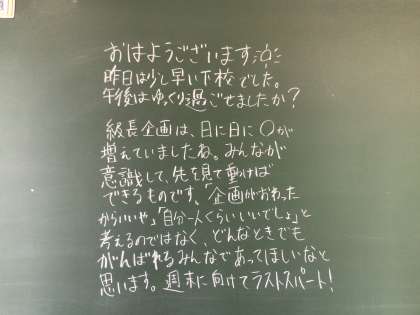 おはようございます☼
昨日は少し早い下校でした。
午後はゆっくり過ごせましたか？
級長企画は、日に日に〇が
増えていましたね。みんなが
意識して、先を見て動けば
できるものです、「企画がおわった
からいいや」「自分一人くらいいいでしょ」と
考えるのではなく、どんなときでも
がんばれるみんなであってほしいなと
思います。週末に向けてラストスパート！